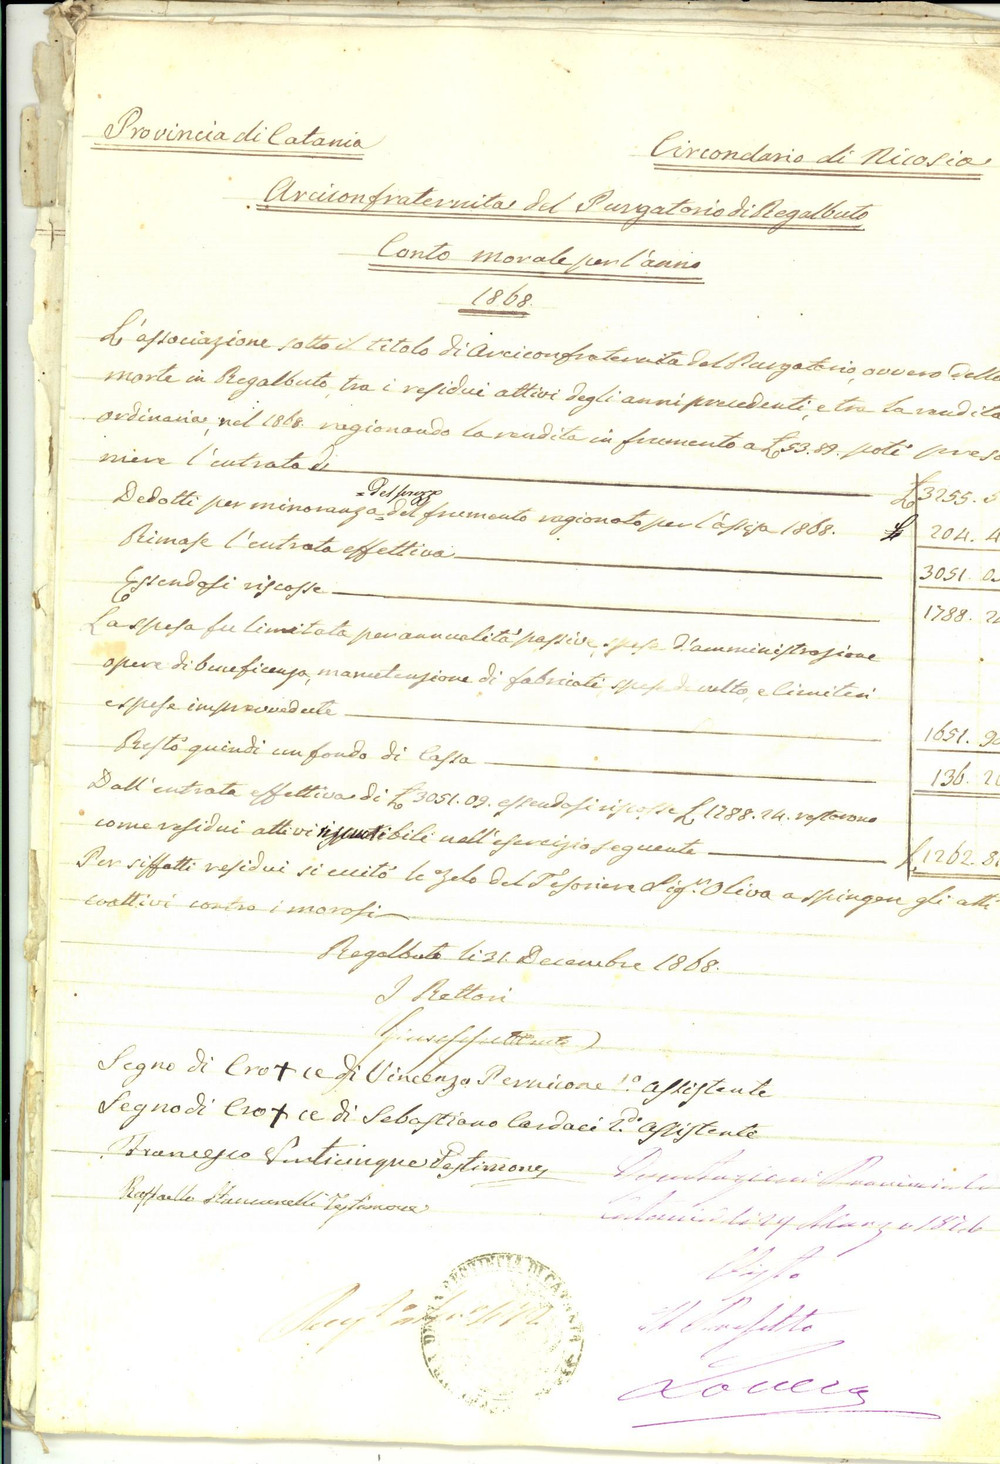 Provincia di Catania
Circondario di Nicosia
Arciconfraternita del Purgatorio di Regalbuto
Conto morale per l'anno
1868.
L'associazione sotto il titolo di Arciconfraternita del Purgatorio, ovvero della
morte in Regalbuto, tra i residui attivi degli anni precedenti, e tra la rendita
ordinaria, nel 1868. ragionando la rendita in frumento a £ 53.89. potè preso
niere l'entrata di £ 3255.5
= del prezzo
Dedotti per minoranza = del frumento ragionato per l'assisa 1868. £ 204.4
Rimase l'entrata effettiva 3051.0
Essendosi riscosse 1788.2
La spesa fu limitata per annualità passive, spese d'amministrazione
opere di beneficenza, manutenzione di fabricati, spese di culto, e limiteri
e spese imprevvedute 1651.9
Restò quindi un fondo di Cassa 136.20
Dall'entrata effettiva di £ 3051.09. essendosi riscosse £ 1788.24. restarono
come residui attivi nell'esercizio seguente £ 1262.8
Per siffatti residui si eccitò lo zelo del Tesoriere Sig.r Oliva a spingere gli atti
coattivi contro i morosi
Regalbuto li 31. Decembre 1868.
I Rettori
Segno di Cro+ce di Vincenzo Pernicone 1.o assistente
Segno di Cro+ce di Sebastiano Cardaci 2.do assistente
Francesco Testimone
Raffaello Stancanelli Testimone
Deputazione Provinciale
Catania li 24 Marzo 1876
Visto
Il Prefetto
PROVINCIA DI CATANIA